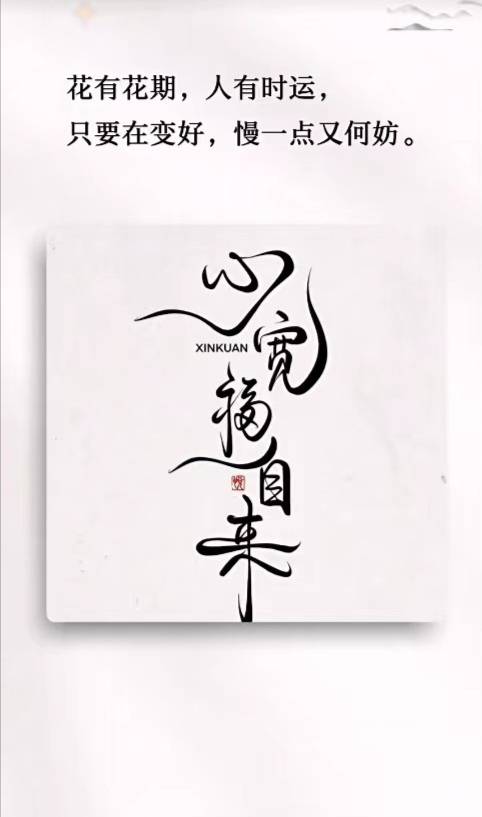 花有花期，人有时运，
只要在变好，慢一点又何妨。
心
XINKUAN
宽
福
自
来